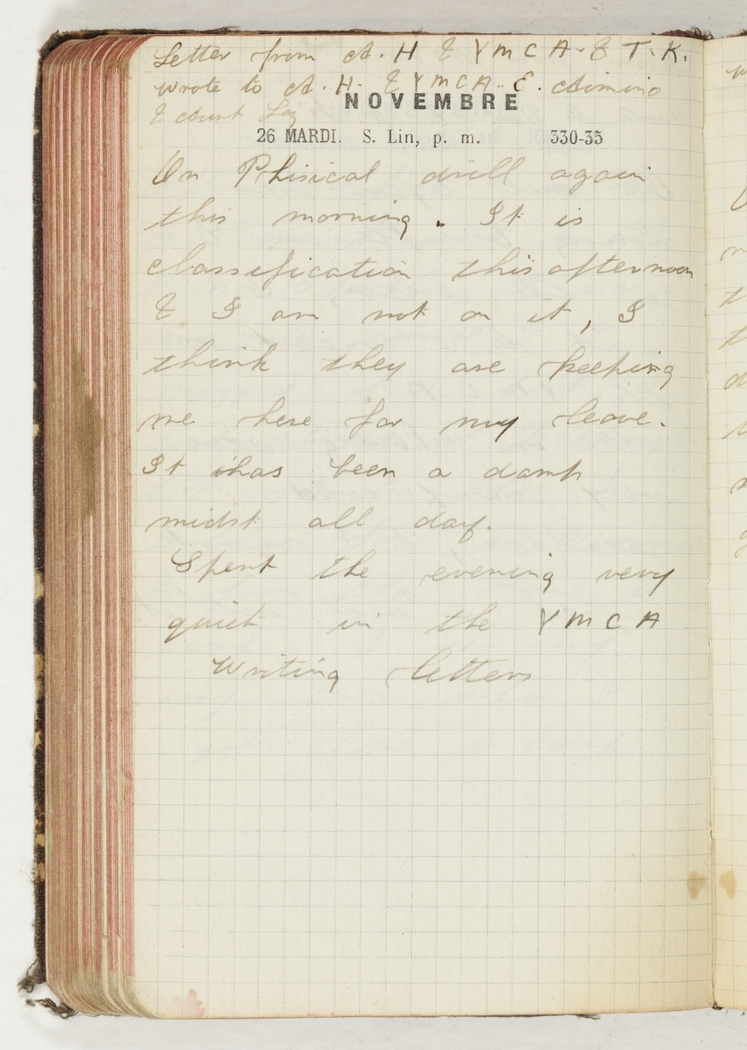 Letter from A. H & YMCA & T. K.
Wrote to A. H. & YMCA. E.
& Aunt
NOVEMBRE
26 MARDI. S. Lin, p. m. 330-35
On Phisical drill again
this morning. It is
classification this afternoon
& I am not on it, I
think they are keeping
me here for my leave.
It has been a damp
midst all day.
Spent the evening very
quiet in the YMCA
Writing letters